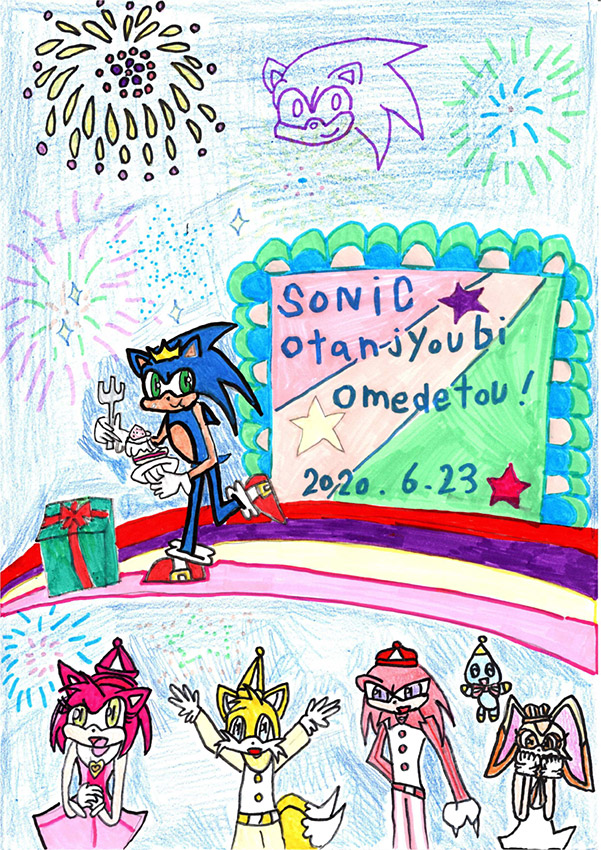 SONiC
otanjyoubi
omedetou!
2020.6.23